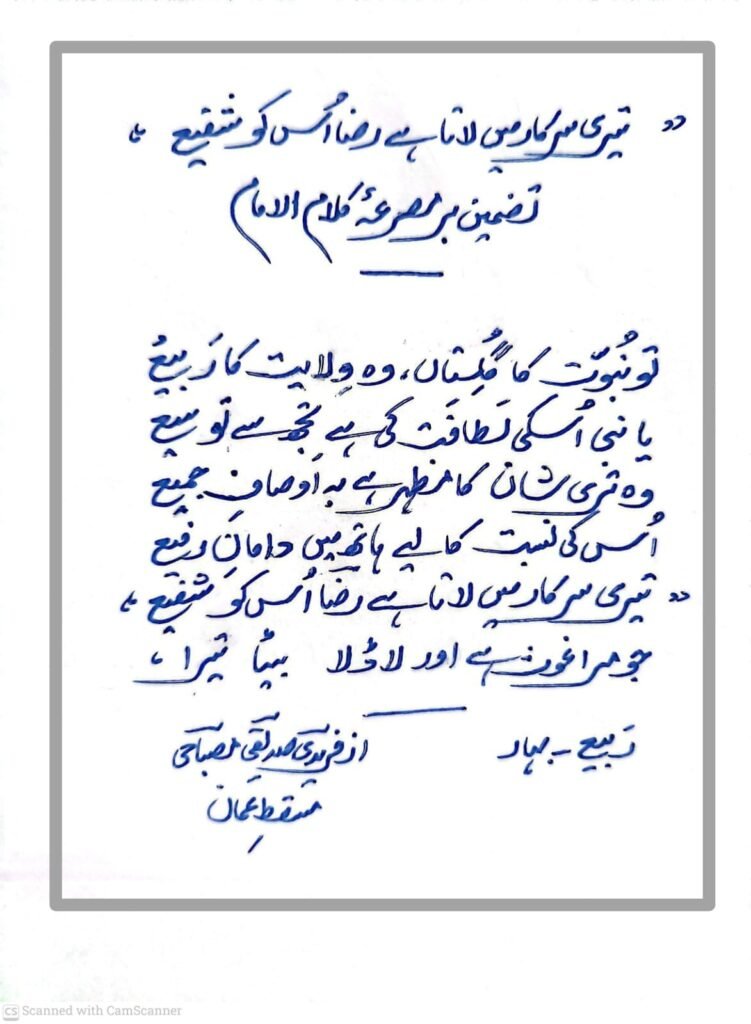 " تیری سرکار میں لاتا ہے رضا اُس کو شفیع "
تضمین بر مصرعۂ کلام الامام
تو نُبوّت کا گُلِستاں، وہ وِلایت کا رَبیعْ
یا نبی اُسکی لَطافَت کی ہے تجھ سے توسیع
وہ تری شان کا مظہر ہے بہ اَوصافِ جمیع
اُس کی نسبت کا لیے ہاتھ میں دامانِ رفیع
" تیری سرکار میں لاتا ہے رضا اُس کو شفیع "
جو مرا غوث ہے اور لاڈلا بیٹا تیرا ،
رَبیع - بہار
از فریدی صدیقی مصباحی
مسقط عمان
CS Scanned with CamScanner